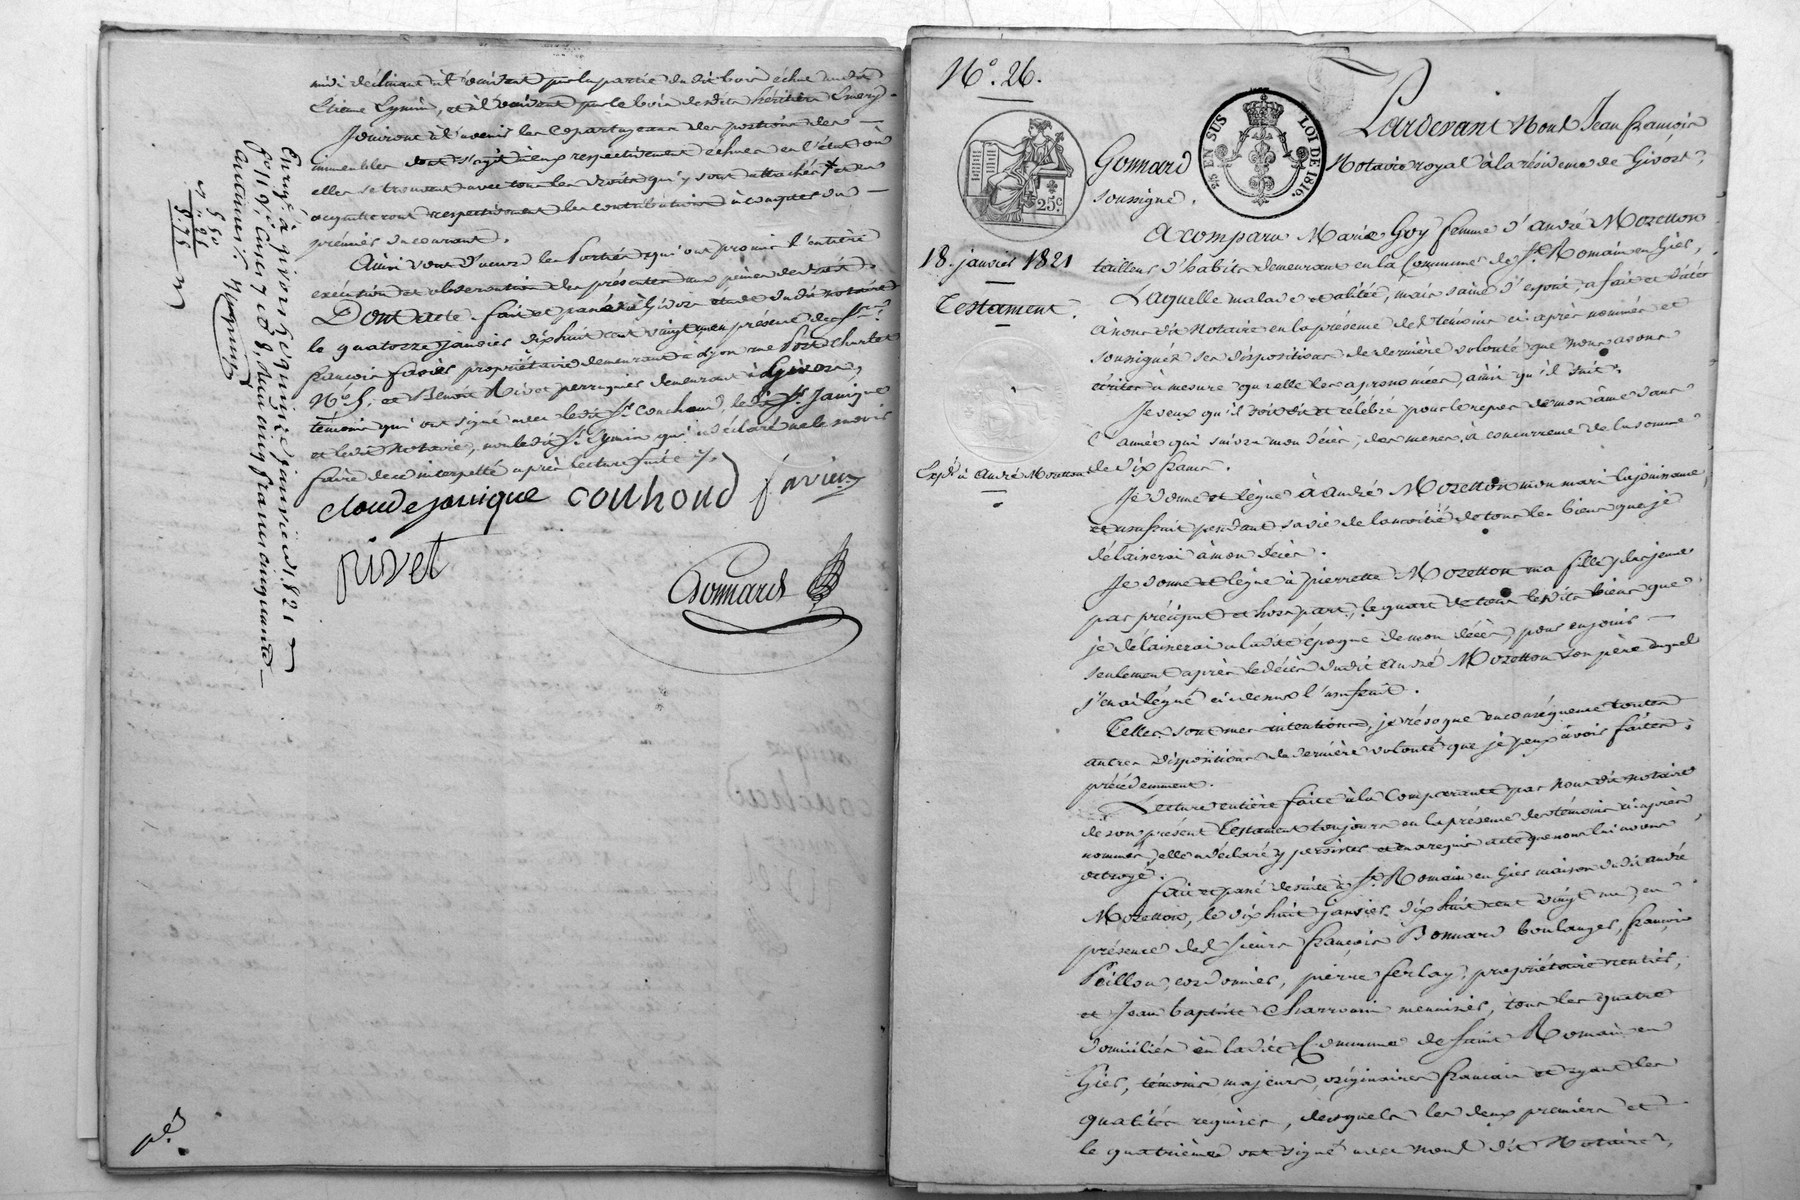 midi déclinant et d'orient par la partie du dit bois échue audit
Etienne Eymin, et à l'occident par le bois desdits héritiers
Jouiront à l'avenir les copartageans des portions des
immeubles dont s'agit à eux respectivement échues en l'état où
elles se trouvent avec tous les droits qui y sont attachés et en
acquitteront respectivement les contributions à compter du
premier du courant.
Ainsi vont d'accord les Parties qui ont promis l'entière
exécution et observation des présentes aux peines de droit.
Dont acte. fait et passé à Givors étude du dit notaire
le quatorze janvier dix huit cent vingt un présence de Srs
françois favier propriétaire demeurant à Lyon rue Port Charlet
No 5, et Benoit Rivet perruquier demeurant à Givors,
témoins qui ont signé avec ledit Sr Couchoud, ledit Sr Janique
et ledit Notaire, non ledit Sr Eymin qui a déclaré ne le savoir
faire de ce interpellé après lecture faite /.
claude janique couhoud favier
rivet
Gonnard
Enregé à givors le quinze janvier 1821
fo 119, Cases 7 et 8, reçu cinq francs cinquante
centimes %
5 50
" 55
No. 26.
25c
EN SUS
LOI DE 1816.
18. janvier 1821
Testament.
Expé à André Mozetton
Pardevant Nous Jean françois
Gonnard Notaire royal à la résidence de Givors,
soussigné.
A comparu Marie Goy femme d'andré Mozetton
tailleur d'habits demeurant en la Commune de St. Romain en Gier,
Laquelle malade et alitée, mais saine d'esprit, a fait et dicté
à nous dit Notaire en la présence des témoins ci après nommés et
soussignés ses dispositions de dernière volonté que nous avons
écrites à mesure qu'elle les a prononcées, ainsi qu'il suit.
Je veux qu'il soit dit et célébré pour le repos de mon âme dans
l'année qui suivra mon décès, des messes à concurrence de la somme
de dix francs.
Je donne et lègue à André Mozetton mon mari la jouissance
et usufruit pendant sa vie de la moitié de tous les biens que je
délaisserai à mon décès.
Je donne et lègue à pierrette Mozetton ma fille plus jeune
par préciput et hors part, le quart de tous lesdits biens que
je délaisserai à ladite époque de mon décès, pour en jouir
seulement après le décès dudit André Mozetton son père auquel
j'en ai légué ci dessus l'usufruit.
Telles sont mes intentions, je révoque en conséquence toutes
autres dispositions de dernière volonté que je peux avoir faites
précédemment.
Lecture entière faite à la Comparante par nous dit notaire
de son présent Testament toujours en la présence des témoins ci après
nommés, elle a déclaré y persister et en a requis acte que nous lui avons
octroyé.
fait et passé de suite à St. Romain en Gier maison dudit andré
Mozetton, le dix huit janvier dix huit cent vingt un, en
présence des Sieurs françois Bonnard boulanger, françois
Peillon, cordonnier, pierre ferlay, propriétaire rentier,
et Jean baptiste Charvenin menuisier, tous les quatre
domiciliés en ladite Commune de Saint Romain en
Gier, témoins majeurs, originaires français et ayant les
qualités requises, desquels les deux premiers et
le quatrième ont signé avec nous dit Notaire,